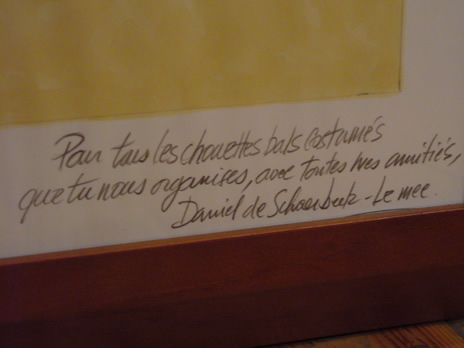 Pour tous les chouettes bals costumés
que tu nous organises, avec toutes mes amitiés,
Daniel de Schaerbeek - Le mee.